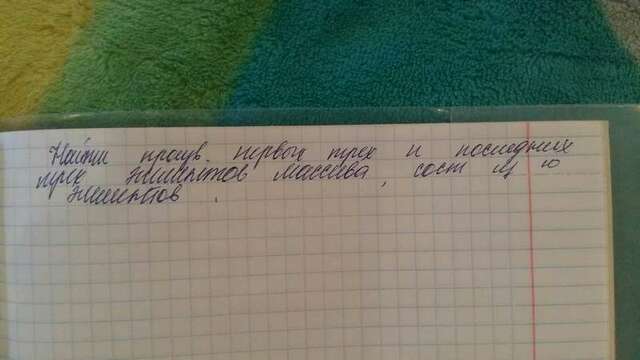 Найти произв. первых трех и последних
трех элементов массива, сост из 10
элементов.